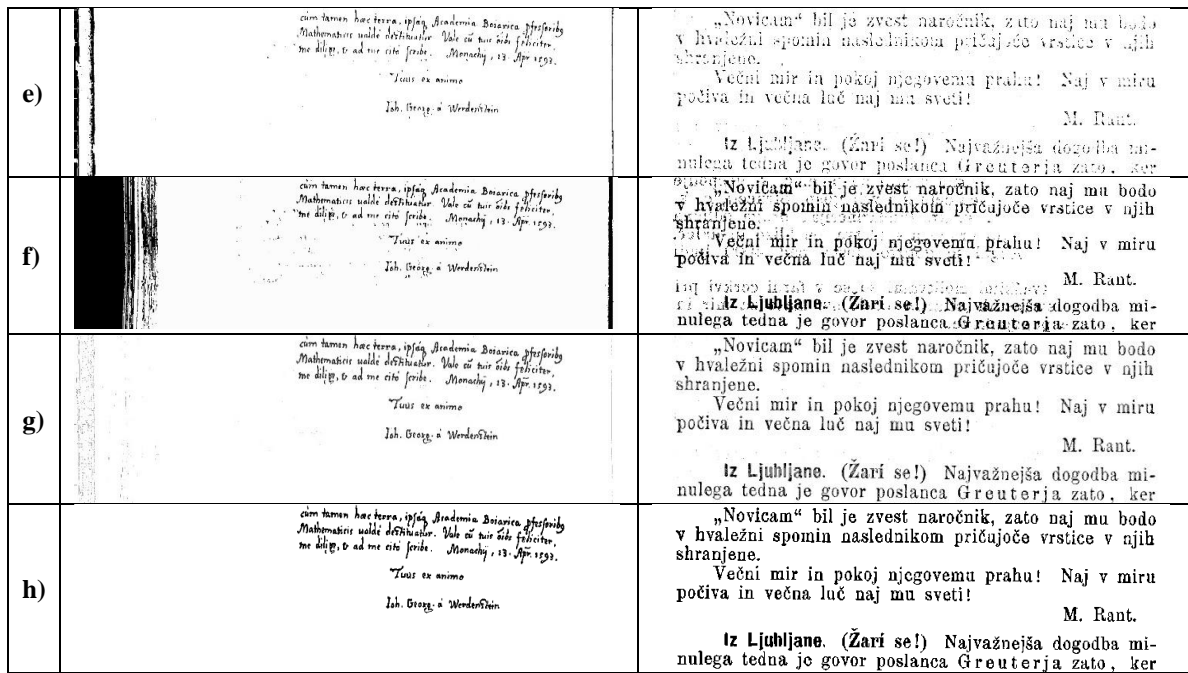 e)
cùm tamen hæc terra, ipsáq Academia Boiarica pfessoribq
Mathematicis ualdè destituatur. Vale cū tuis oībs feliciter,
me dilige, & ad me citò scribe. Monachij, 13. Apr. 1593.
Tuus ex animo
Joh. Georg. à Werdenstein
„Novicam“ bil je zvest naročnik, zato naj mu bodo
v hvaležni spomin naslednikom pričujoče vrstice v njih
shranjene.
Večni mir in pokoj njegovemu prahu! Naj v miru
počiva in večna luč naj mu sveti!
M. Rant.
Iz Ljubljane. (Žari se!) Najvažnejša dogodba mi-
nulega tedna je govor poslanca Greuterja zato, ker
f)
cùm tamen hæc terra, ipsáq Academia Boiarica pfessoribq
Mathematicis ualdè destituatur. Vale cū tuis oībs feliciter,
me dilige, & ad me citò scribe. Monachij, 13. Apr. 1593.
Tuus ex animo
Joh. Georg. à Werdenstein
„Novicam“ bil je zvest naročnik, zato naj mu bodo
v hvaležni spomin naslednikom pričujoče vrstice v njih
shranjene.
Večni mir in pokoj njegovemu prahu! Naj v miru
počiva in večna luč naj mu sveti!
M. Rant.
Iz Ljubljane. (Žari se!) Najvažnejša dogodba mi-
nulega tedna je govor poslanca Greuterja zato, ker
g)
cùm tamen hæc terra, ipsáq Academia Boiarica pfessoribq
Mathematicis ualdè destituatur. Vale cū tuis oībs feliciter,
me dilige, & ad me citò scribe. Monachij, 13. Apr. 1593.
Tuus ex animo
Joh. Georg. à Werdenstein
„Novicam“ bil je zvest naročnik, zato naj mu bodo
v hvaležni spomin naslednikom pričujoče vrstice v njih
shranjene.
Večni mir in pokoj njegovemu prahu! Naj v miru
počiva in večna luč naj mu sveti!
M. Rant.
Iz Ljubljane. (Žari se!) Najvažnejša dogodba mi-
nulega tedna je govor poslanca Greuterja zato, ker
h)
cùm tamen hæc terra, ipsáq Academia Boiarica pfessoribq
Mathematicis ualdè destituatur. Vale cū tuis oībs feliciter,
me dilige, & ad me citò scribe. Monachij, 13. Apr. 1593.
Tuus ex animo
Joh. Georg. à Werdenstein
„Novicam“ bil je zvest naročnik, zato naj mu bodo
v hvaležni spomin naslednikom pričujoče vrstice v njih
shranjene.
Večni mir in pokoj njegovemu prahu! Naj v miru
počiva in večna luč naj mu sveti!
M. Rant.
Iz Ljubljane. (Žari se!) Najvažnejša dogodba mi-
nulega tedna je govor poslanca Greuterja zato, ker